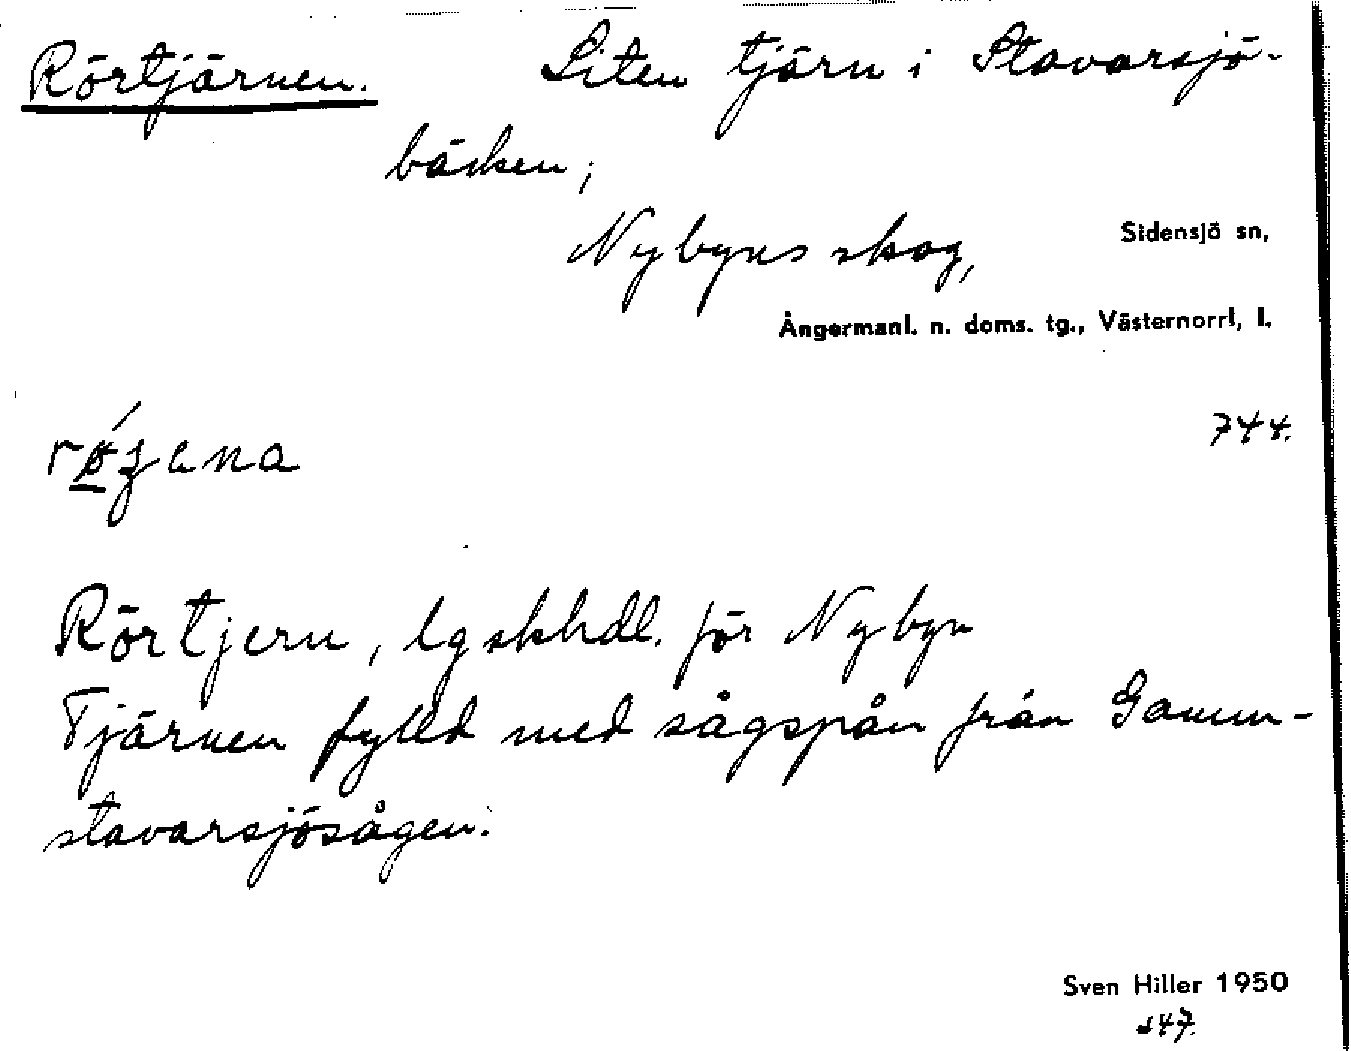 Rörtjärnen. Liten tjärn i Stavarsjö-
bäcken;
Nybyns skog,
Sidensjö sn,
Ångermanl. n. doms. tg., Västernorrl. l.
744.
Rörtjern, lgskhdl. för Nybyn
Tjärnen fylld med sågspån från Gamm-
stavarsjösågen.
Sven Hiller 1950
s47.